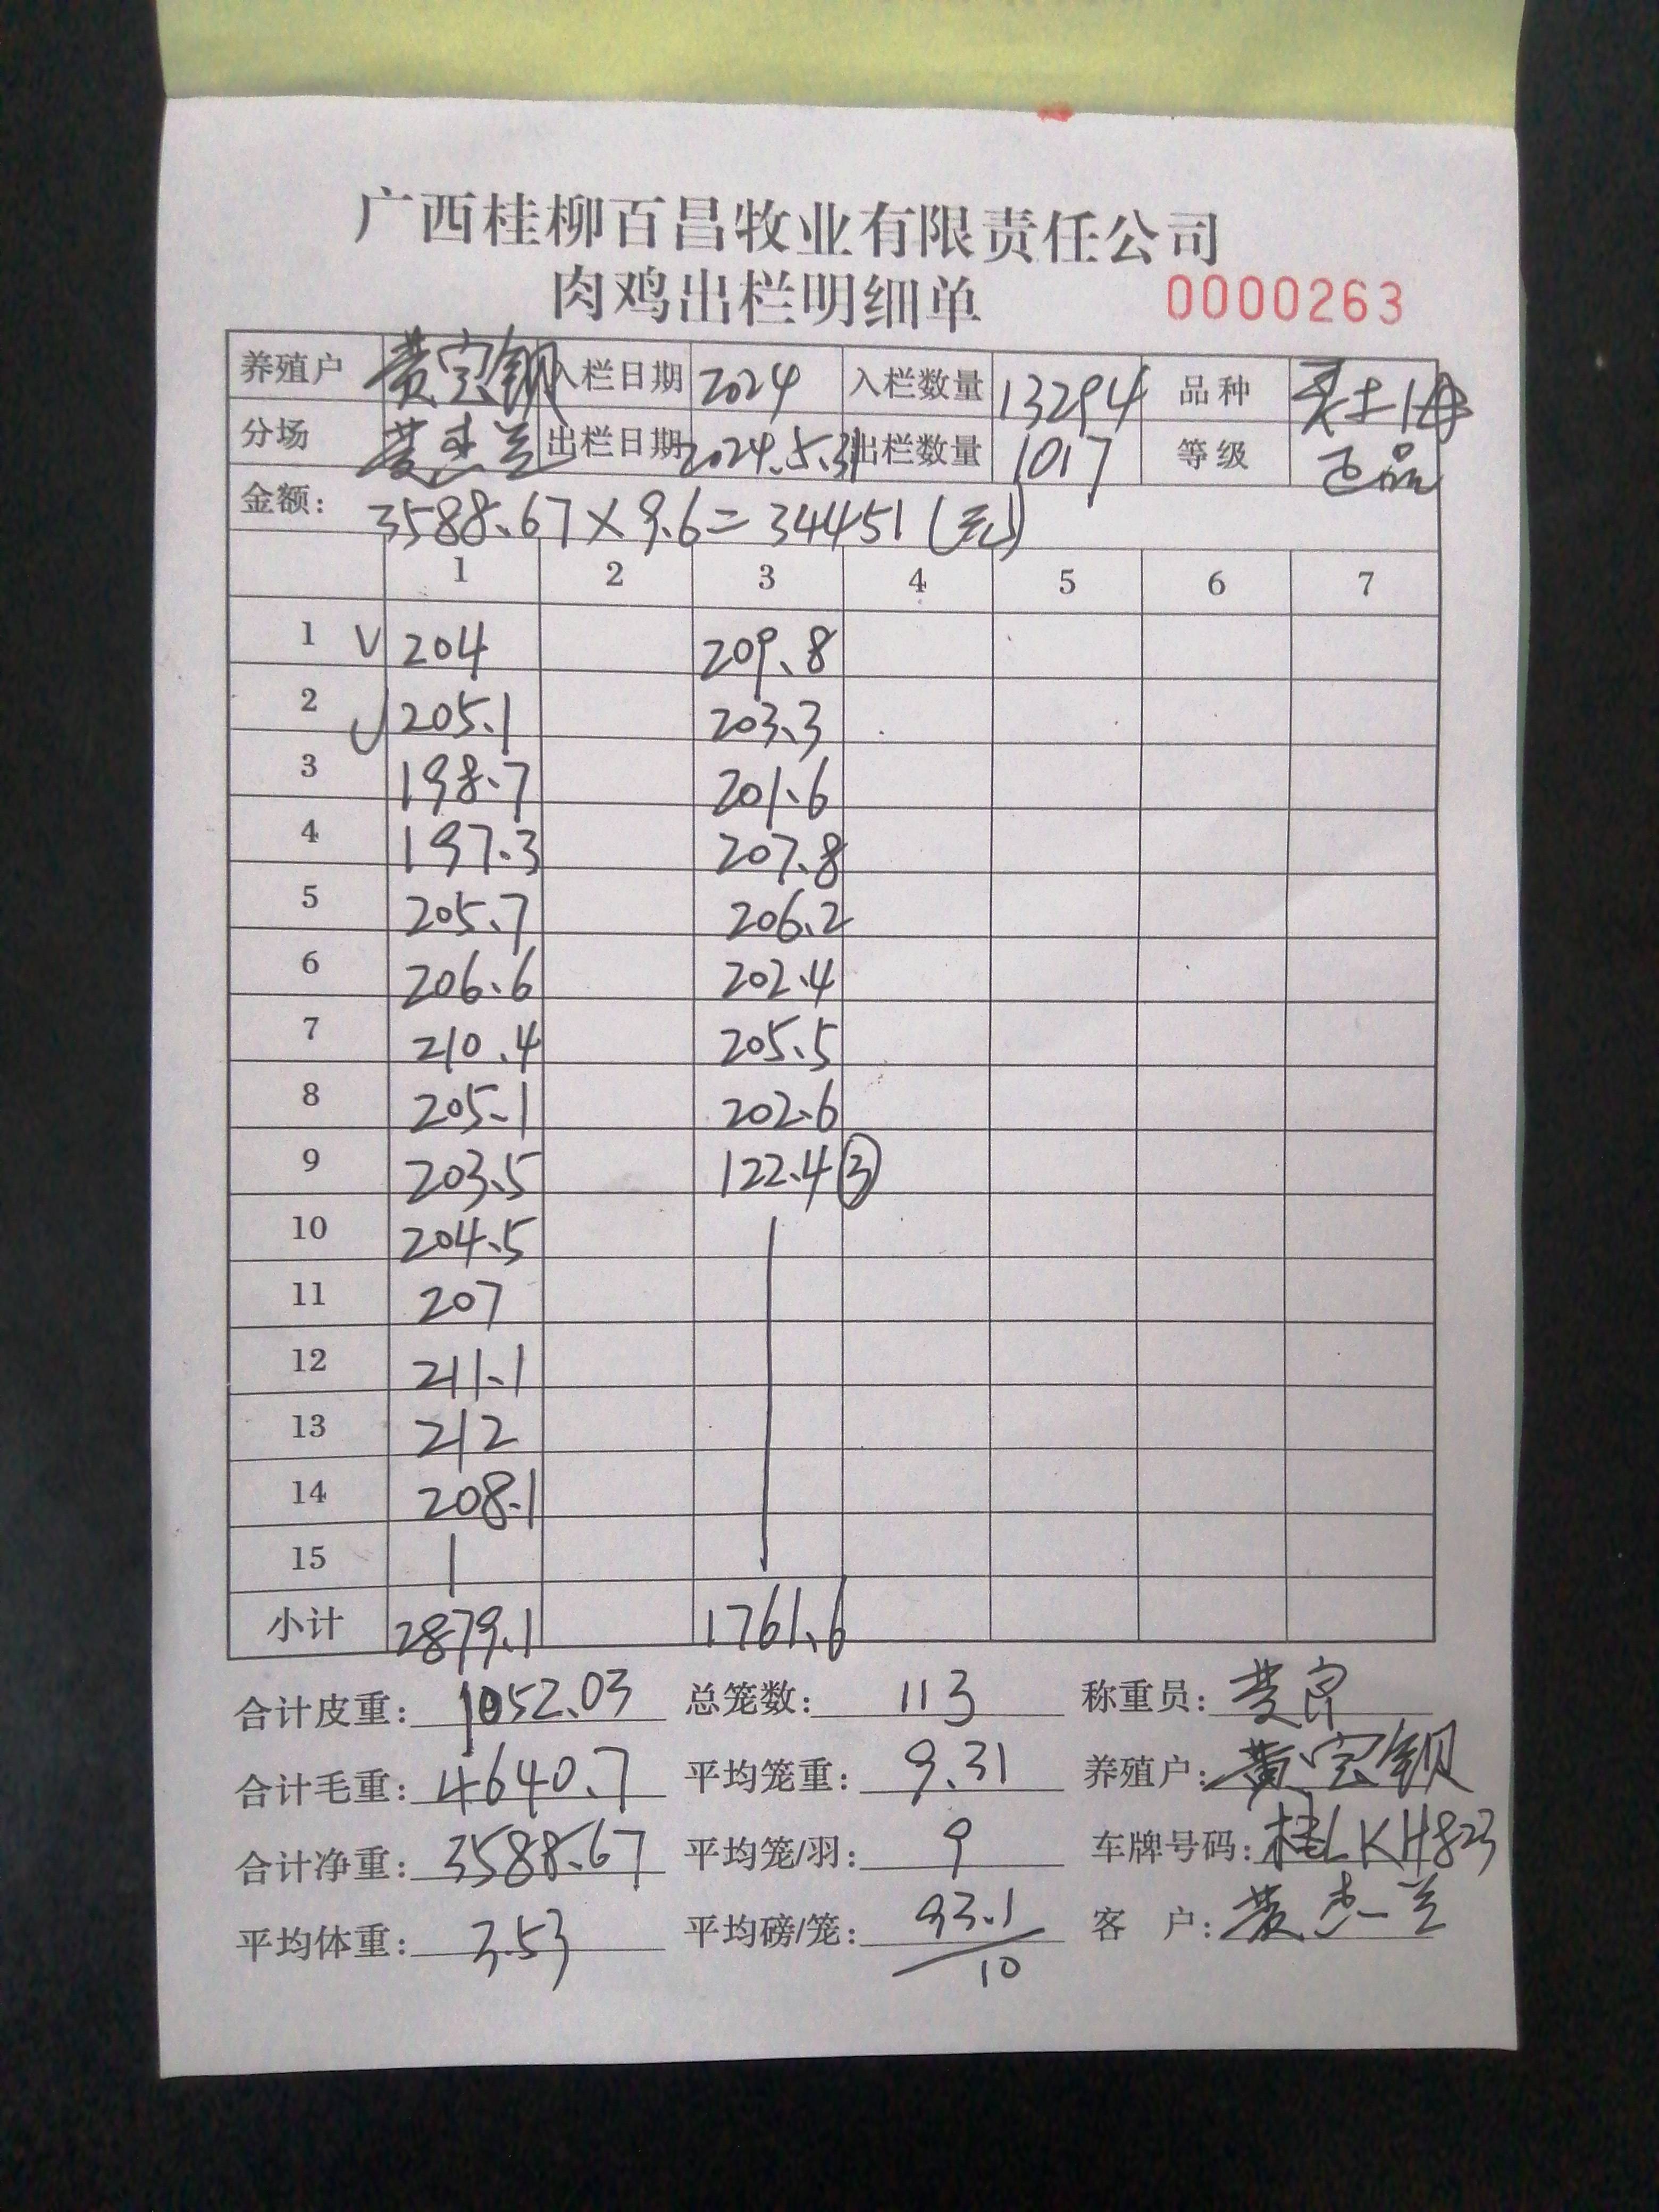 广西桂柳百昌牧业有限责任公司
肉鸡出栏明细单 0000263
养殖户 黄宝钢 入栏日期 2024 入栏数量 13294 品种
分场 出栏日期 2024.5.31 出栏数量 1017 等级 正品
金额: 3588.67×9.6=34451(元)
1 2 3 4 5 6 7
1 V 204 209.8
2 205.1 203.3
3 198.7 201.6
4 197.3 207.8
5 205.7 206.2
6 206.6 202.4
7 210.4 205.5
8 205.1 202.6
9 203.5 122.4 ③
10 204.5
11 207
12 211.1
13 212
14 208.1
15
小计 2879.1 1761.6
合计皮重: 1052.03 总笼数: 113 称重员:
合计毛重: 4640.7 平均笼重: 9.31 养殖户: 黄宝钢
合计净重: 3588.67 平均笼/羽: 9 车牌号码: 桂LKH823
平均体重: 3.53 平均磅/笼: 93.1/10 客 户: